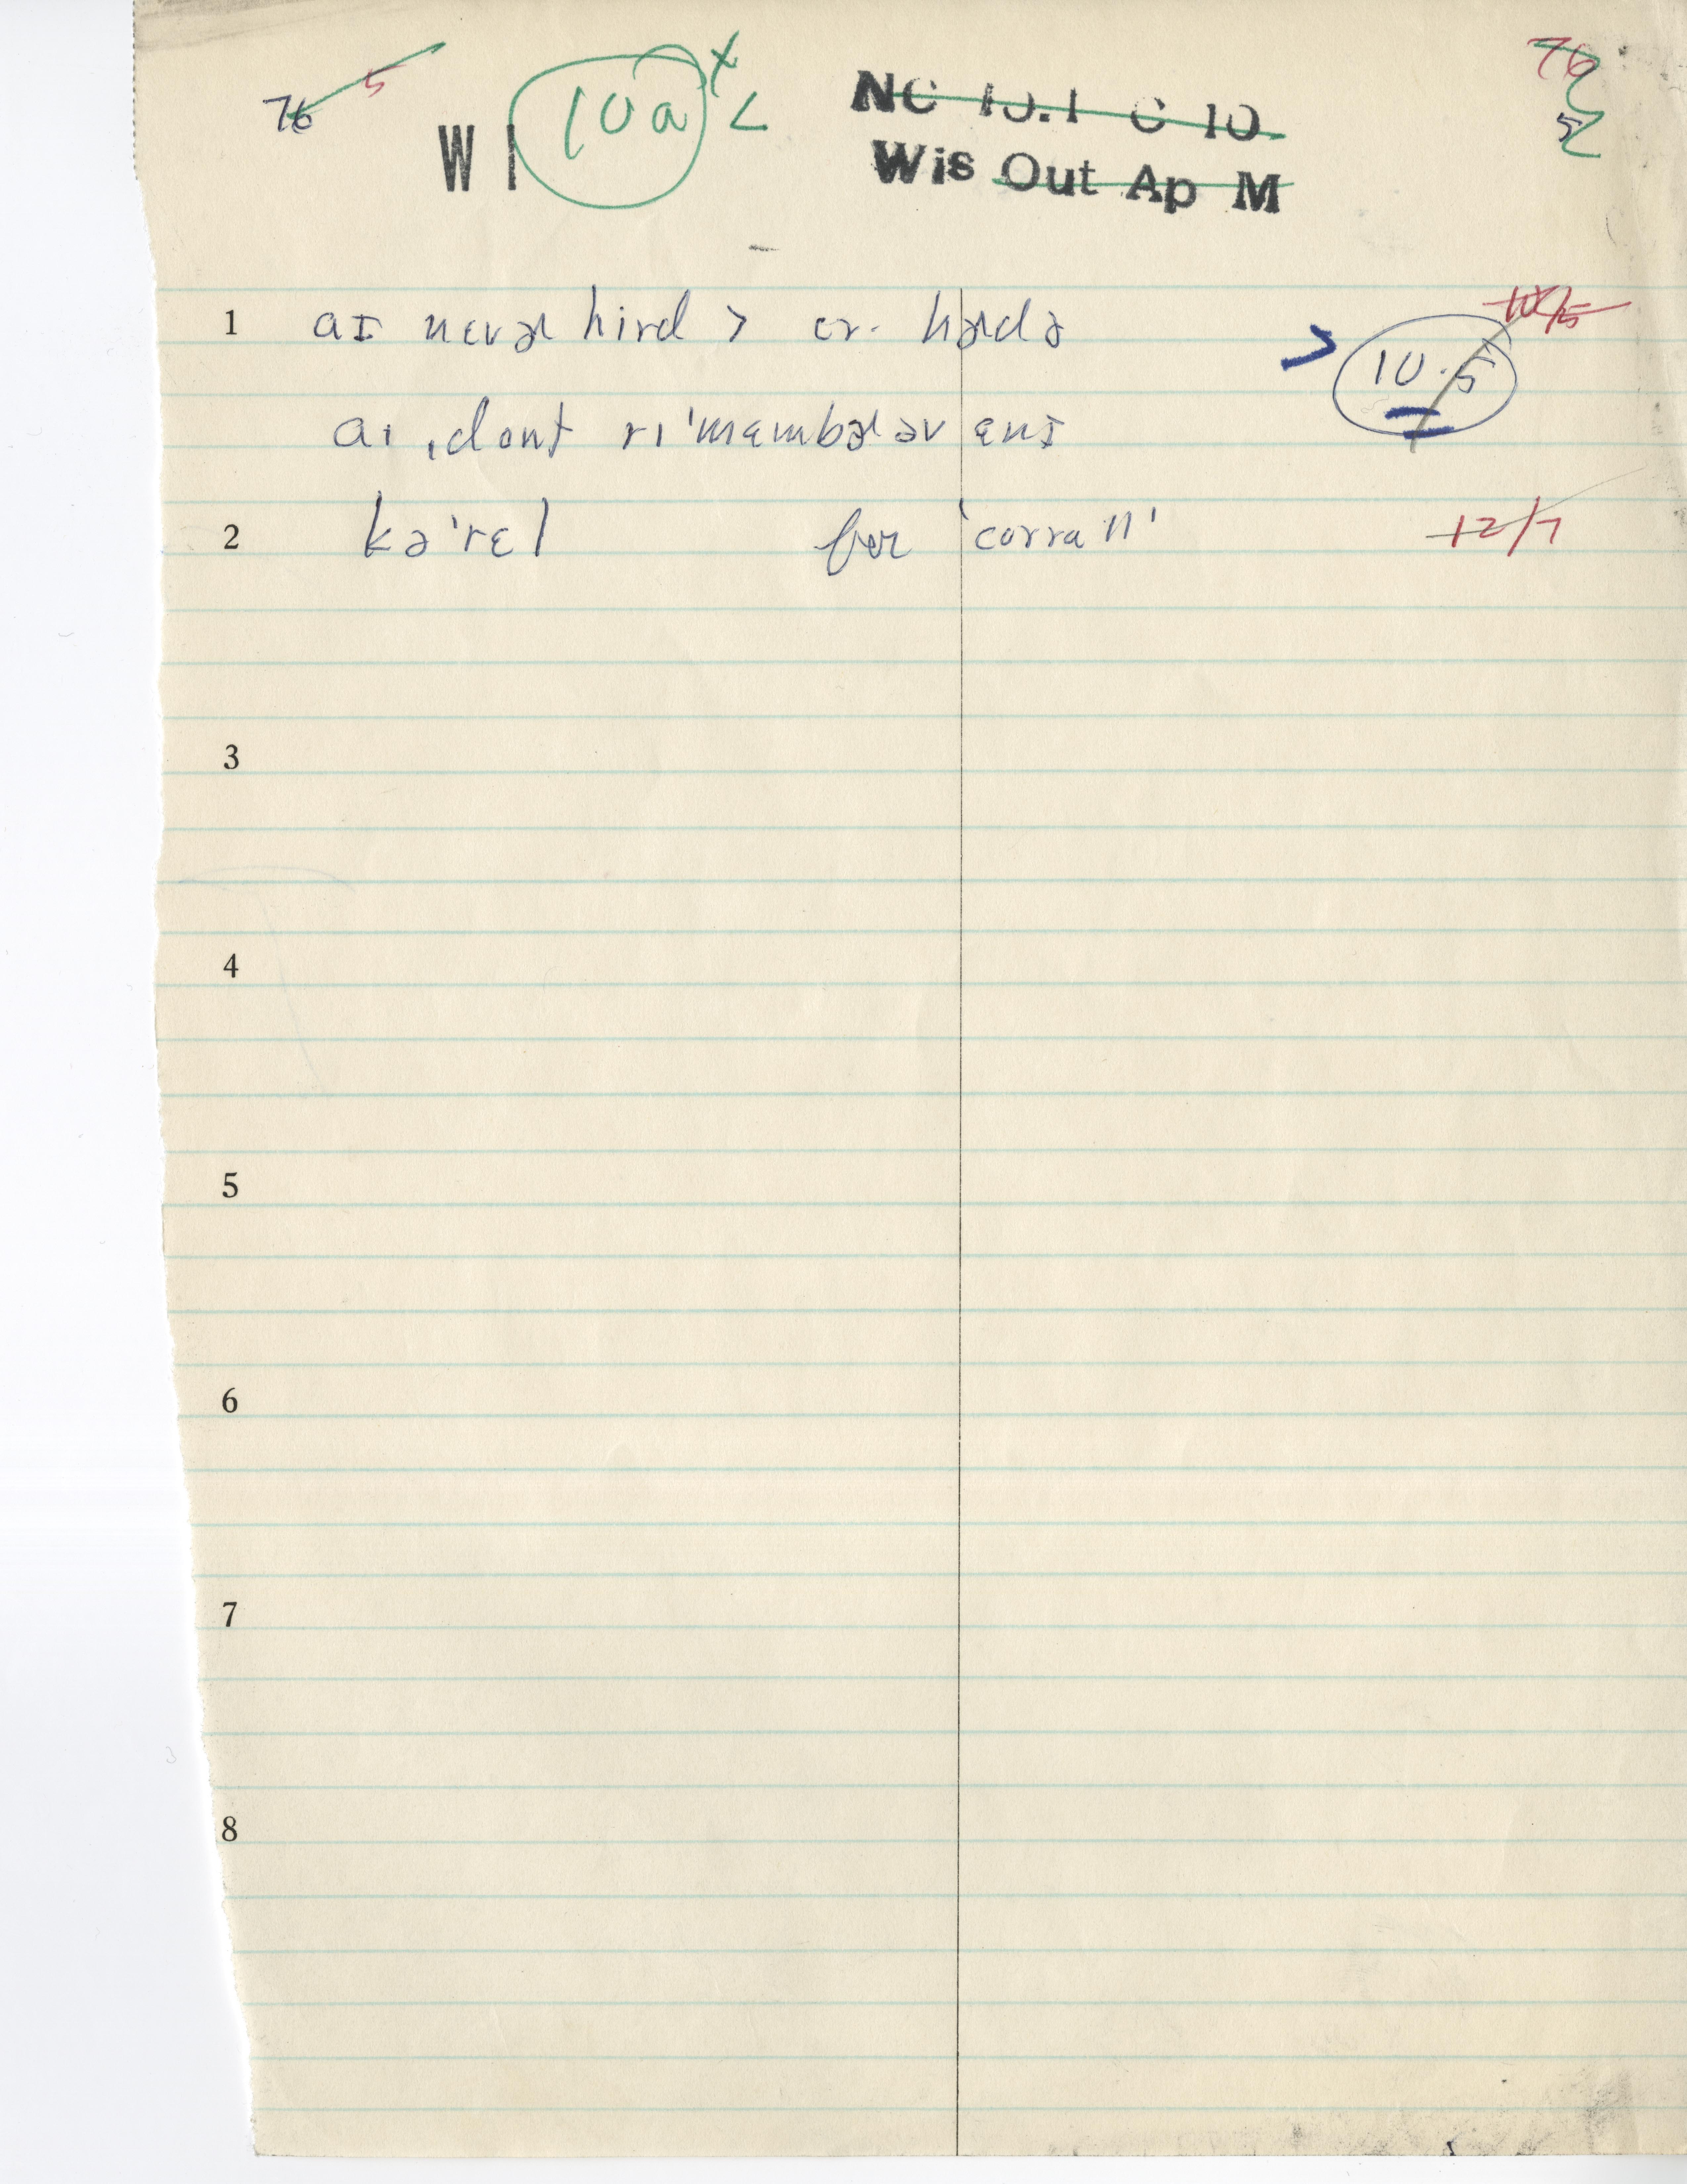 76 5
W I 10a x <
NC 10.1 C 10
Wis Out Ap M
76
5
10/5
1 aɪ nɛvɚ hird > er. hɚdə
> 10.5
aɪ ˌdont rɪˈmɛmbɚ əv ɛnɪ
2 kəˈrɛl for 'corrall' 12/7
3
4
5
6
7
8